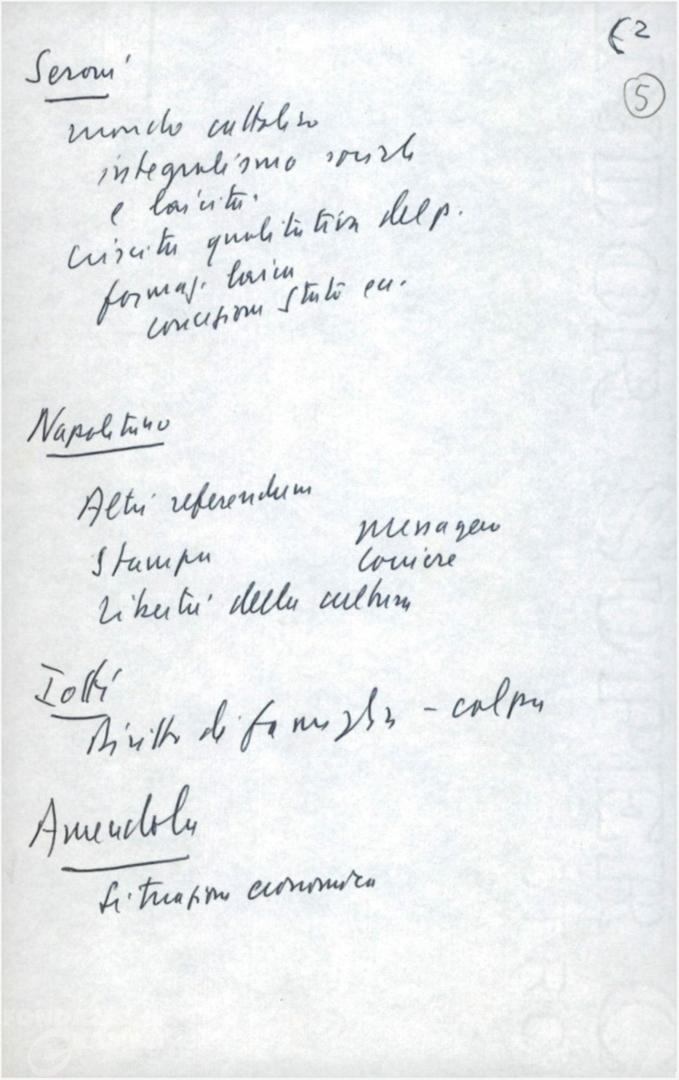 5
Seroni
mondo cattolico
integralismo sociale
e laicità.
Crescita qualitativa del p.
formaz. laica
concezione Stato ecc.
Napolitano
Altri referendum
Stampa Messaggero
Corriere
Libertà della cultura
Iotti
Diritto di famiglia - colpa
Amendola
Situazione economica